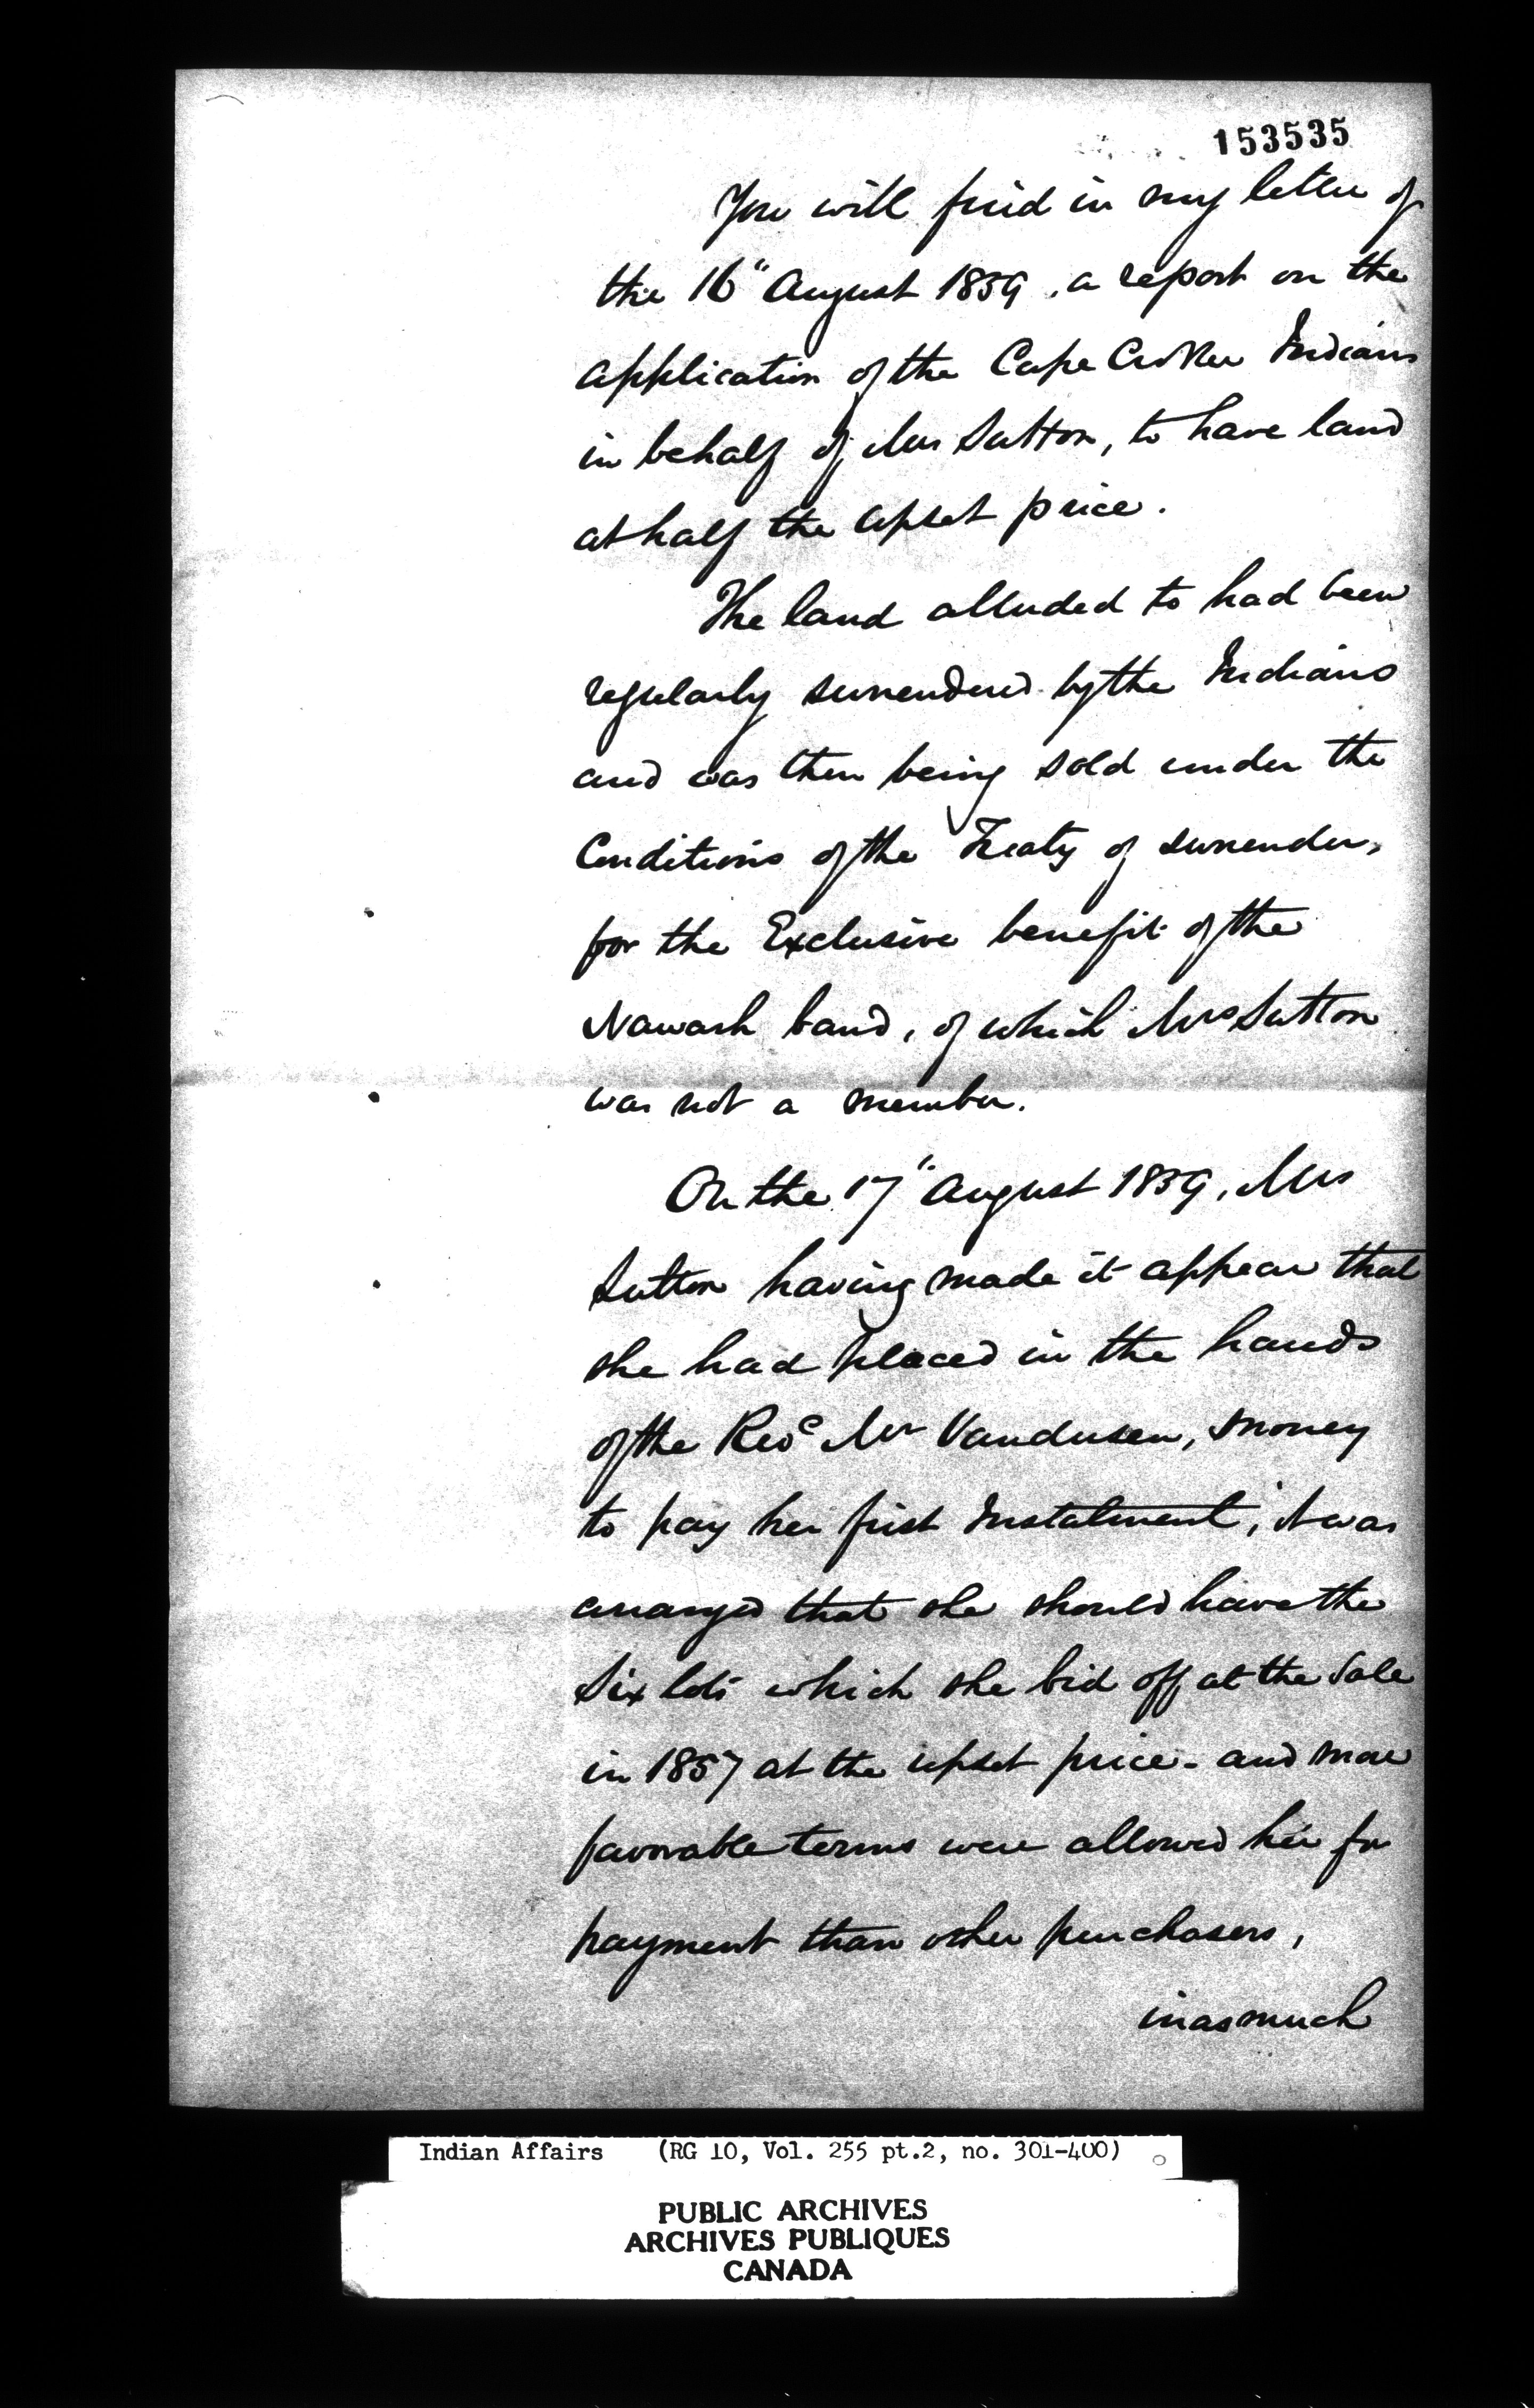 153535
You will find in my letter of
the 16" August 1859, a report on the
application of the Cape Croker Indians
in behalf of Mrs Sutton, to have land
at half the upset price.
The land alluded to had been
regularly surrendered by the Indians
and was then being sold under the
Conditions of the Treaty of surrender,
for the Exclusive benefit of the
Nawash band, of which Mrs Sutton
was not a member.
On the 17" August 1859, Mrs
Sutton having made it appear that
she had placed in the hands
of the Revd Mr Vandusen, money
to pay her first Instalment; it was
arranged that she should have the
six lots which she bid off at the Sale
in 1857 at the upset price - and more
favorable terms were allowed her for
payment than other purchasers,
inasmuch
Indian Affairs (RG 10, Vol. 255 pt.2, no. 301-400)
PUBLIC ARCHIVES
ARCHIVES PUBLIQUES
CANADA